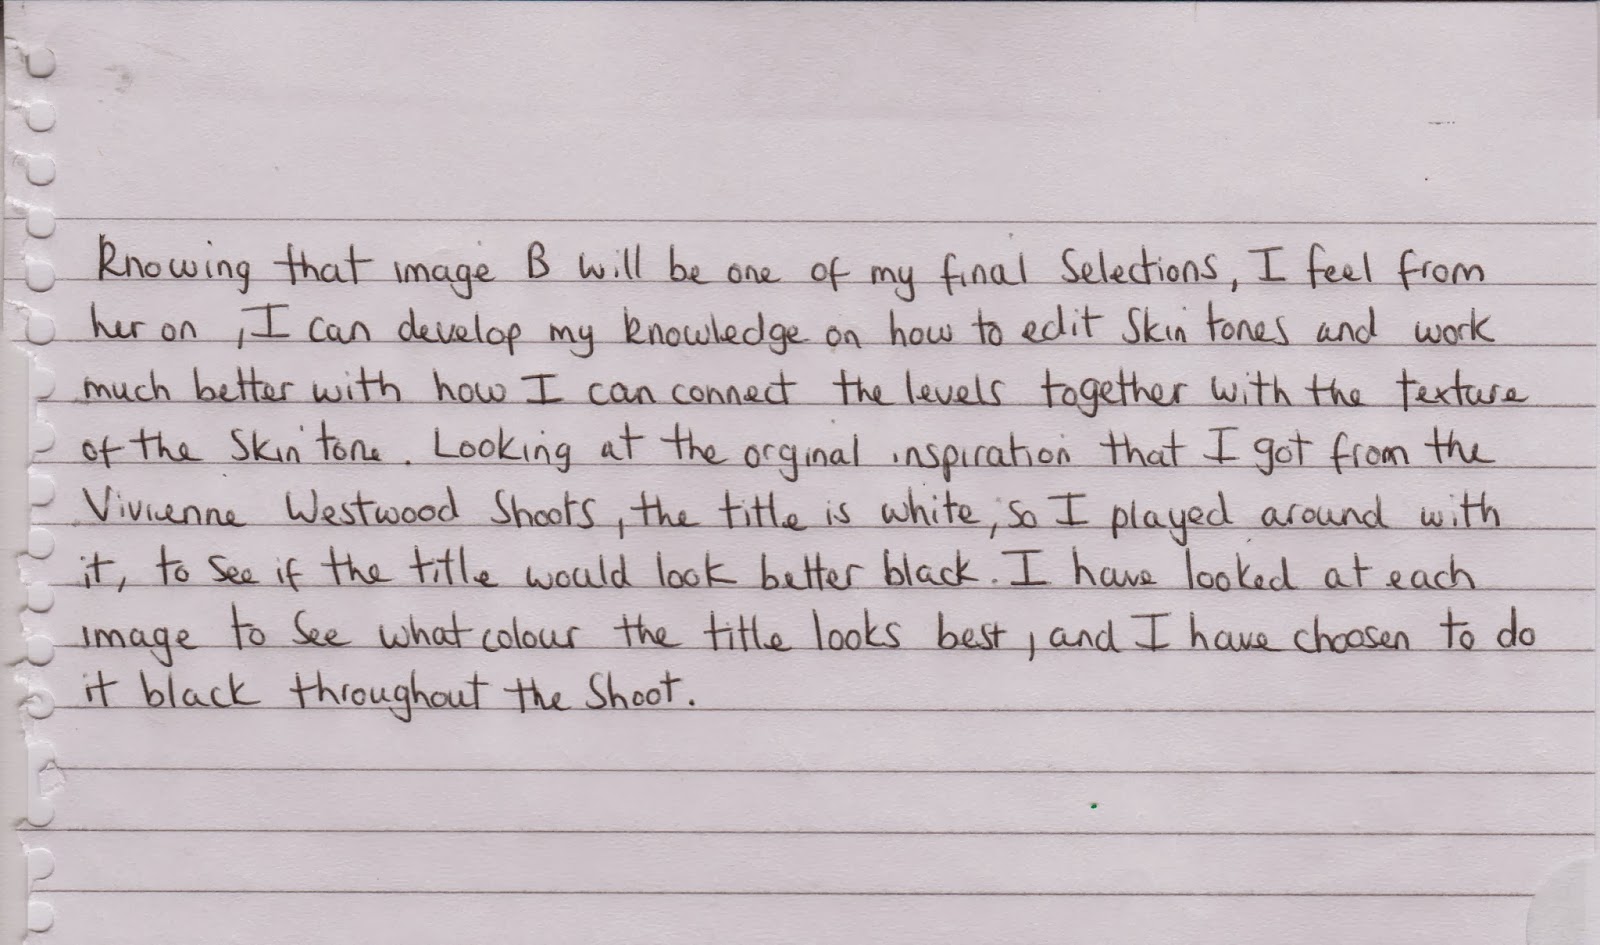 Knowing that image B will be one of my final Selections, I feel from
her on , I can develop my knowledge on how to edit Skin tones and work
much better with how I can connect the levels together with the texture
of the Skin tone. Looking at the orginal inspiration that I got from the
Vivienne Westwood Shoots, the title is white, so I played around with
it, to See if the title would look better black. I have looked at each
image to See what colour the title looks best, and I have choosen to do
it black throughout the Shoot.